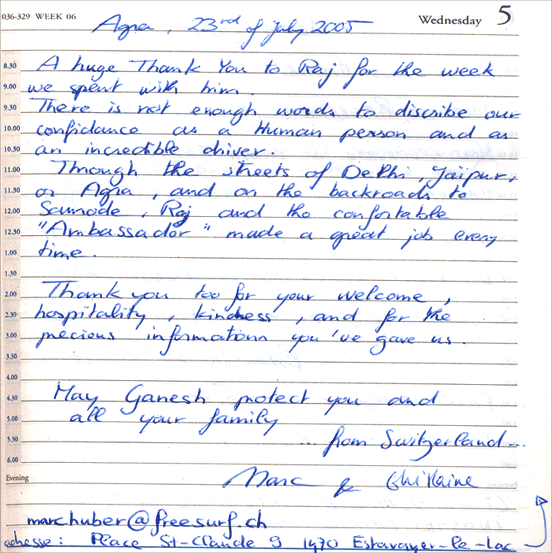 036-329 WEEK 06
Wednesday 5
Agra, 23rd of july 2005
8.30 A huge Thank You to Raj for the week
9.00 we spent with him.
9.30 There is not enough words to discribe our
10.00 confidance as a Human person and as
10.30 an incredible driver.
11.00 Through the streets of Delhi, Jaipur,
11.30 or Agra, and on the backroads to
12.00 Samode, Raj and the confortable
12.30 "Ambassador" made a great job every
1.00 time.
1.30
2.00 Thank you too for your welcome,
2.30 hospitality, kindness, and for the
3.00 precious informations you've gave us.
3.30
4.00 May Ganesh protect you and
4.30
5.00 all your family
5.30 ... from Switzerland...
6.00
Evening Marc & Ghislaine
marchuber@freesurf.ch
adresse: Place St-Claude 9 1470 Estavayer-le-Lac